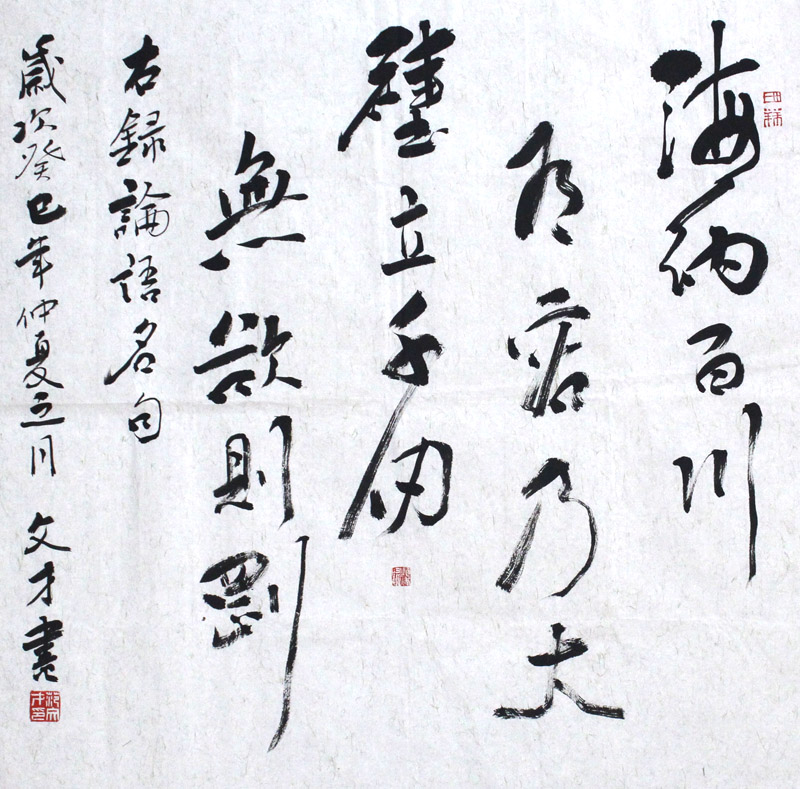 海納百川
有容乃大
壁立千仞
無欲則剛
右録論語名句
歲次癸巳年仲夏之月 文才書